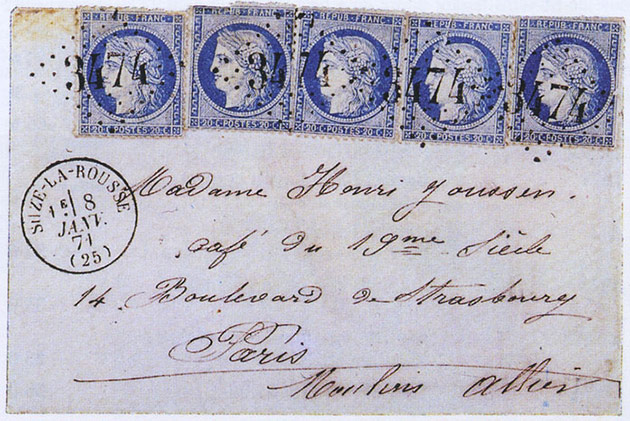 REPUB. FRANC. REPUB. FRANC. REPUB. FRANC. REPUB. FRANC. REPUB. FRANC.
3474 3474 3474 3474
20 C POSTES 20 C 20 C POSTES 20 C 20 C POSTES 20 C 20 C POSTES 20 C 20 C POSTES 20 C
SUZE-LA-ROUSSE
1E 8
JANV.
71
(25)
Madame Henri Joussen.
café du 19me Siècle
14 Boulevard de Strasbourg
Paris
Moulins Allier